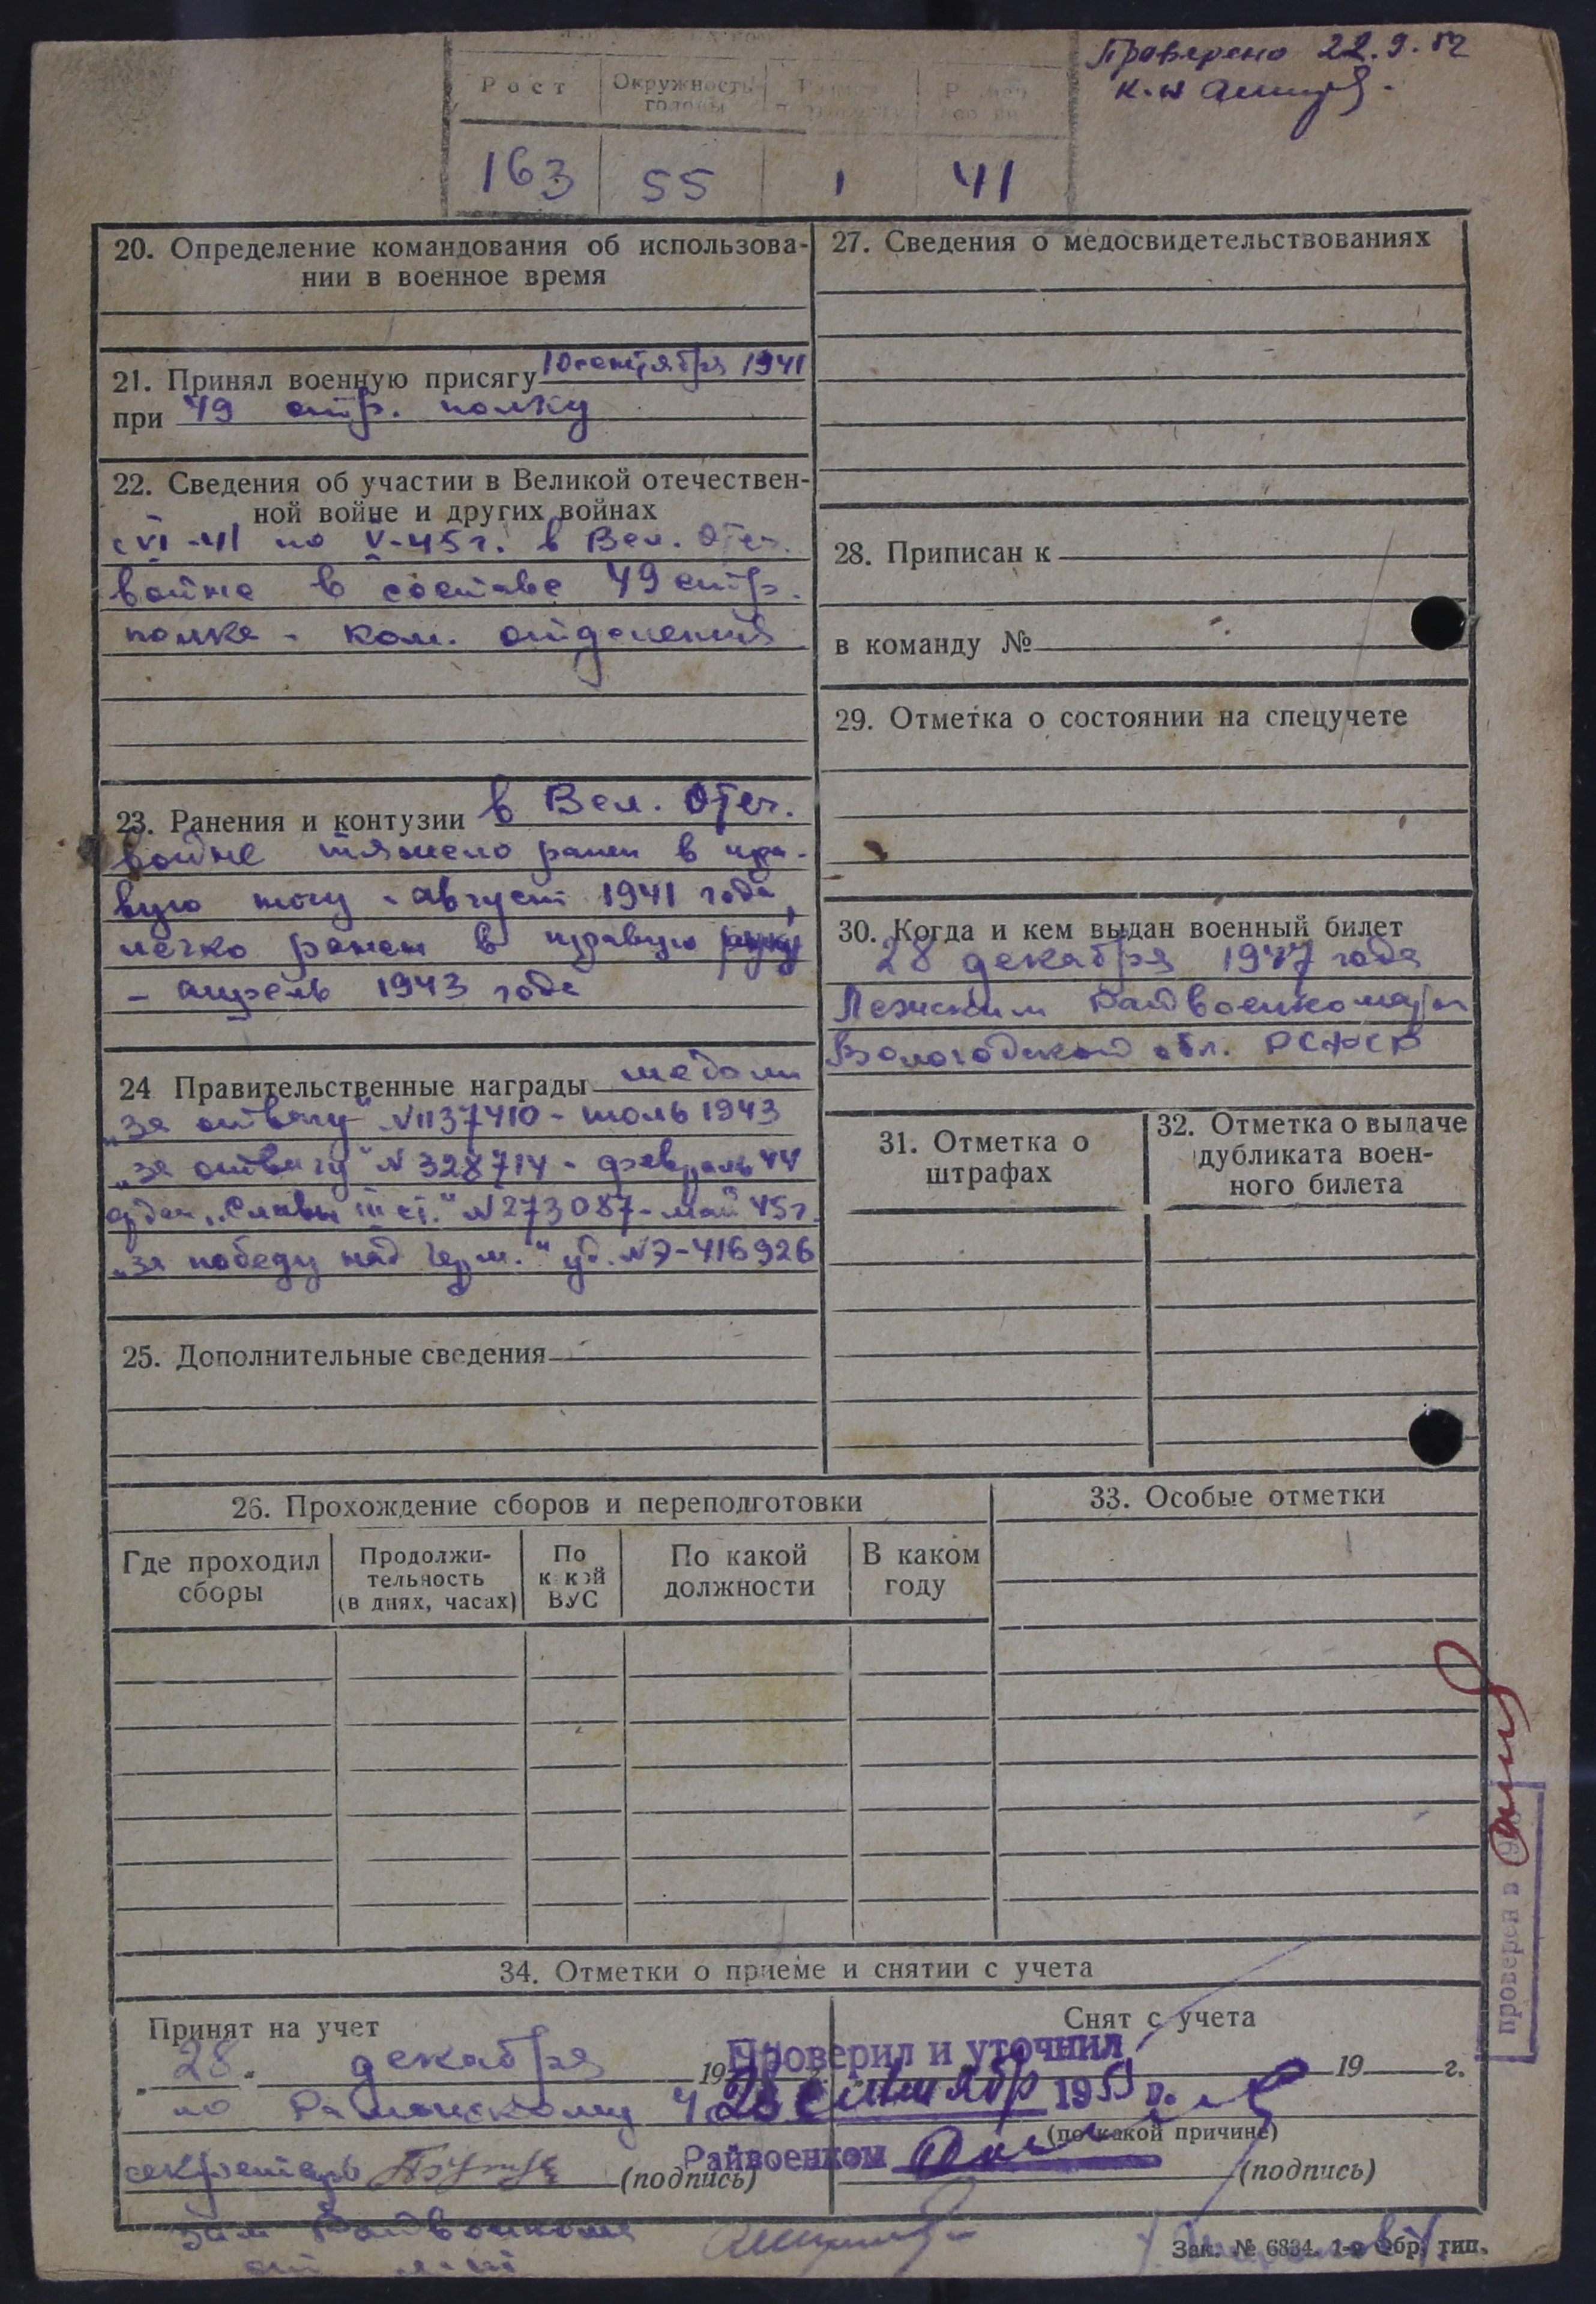 Проверено 22.9.52
к-н
Рост
Окружность головы
163 55 1 41
20. Определение командования об использова-
нии в военное время
21. Принял военную присягу 10 сентября 1941
при 49 стр. полку
22. Сведения об участии в Великой отечествен-
ной войне и других войнах
с VI-41 по V-45 г. в Вел. Отеч.
войне в составе 49 стр.
полка - ком. отделения
23. Ранения и контузии в Вел. Отеч.
войне тяжело ранен в пра-
вую ногу - август 1941 года,
легко ранен в правую руку
- апрель 1943 года
24 Правительственные награды медали
„За отвагу" №1137410 - июль 1943
„За отвагу" № 328714 - февраль 44
орден „Славы III ст." № 273087 - май 45 г.
„За победу над Герм." уд. № Э-416926
25. Дополнительные сведения
26. Прохождение сборов и переподготовки
Где проходил сборы
Продолжи-
тельность
(в днях, часах)
По какой ВУС
По какой должности
В каком году
27. Сведения о медосвидетельствованиях
28. Приписан к
в команду №
29. Отметка о состоянии на спецучете
30. Когда и кем выдан военный билет
28 декабря 1947 года
Лежским Райвоенкоматом
Вологодской обл. РСФСР
31. Отметка о
штрафах
32. Отметка о выдаче
дубликата воен-
ного билета
33. Особые отметки
проверен в
34. Отметки о приеме и снятии с учета
Принят на учет
„28" декабря 19
по
секретарь (подпись)
Снят с учета
19 г.
(по какой причине)
(подпись)
Проверил и уточнил
28 сентября 1951 г.
Райвоенком
Зам Райвоенкома
Зак. № 6834. 1-я Обр. тип.